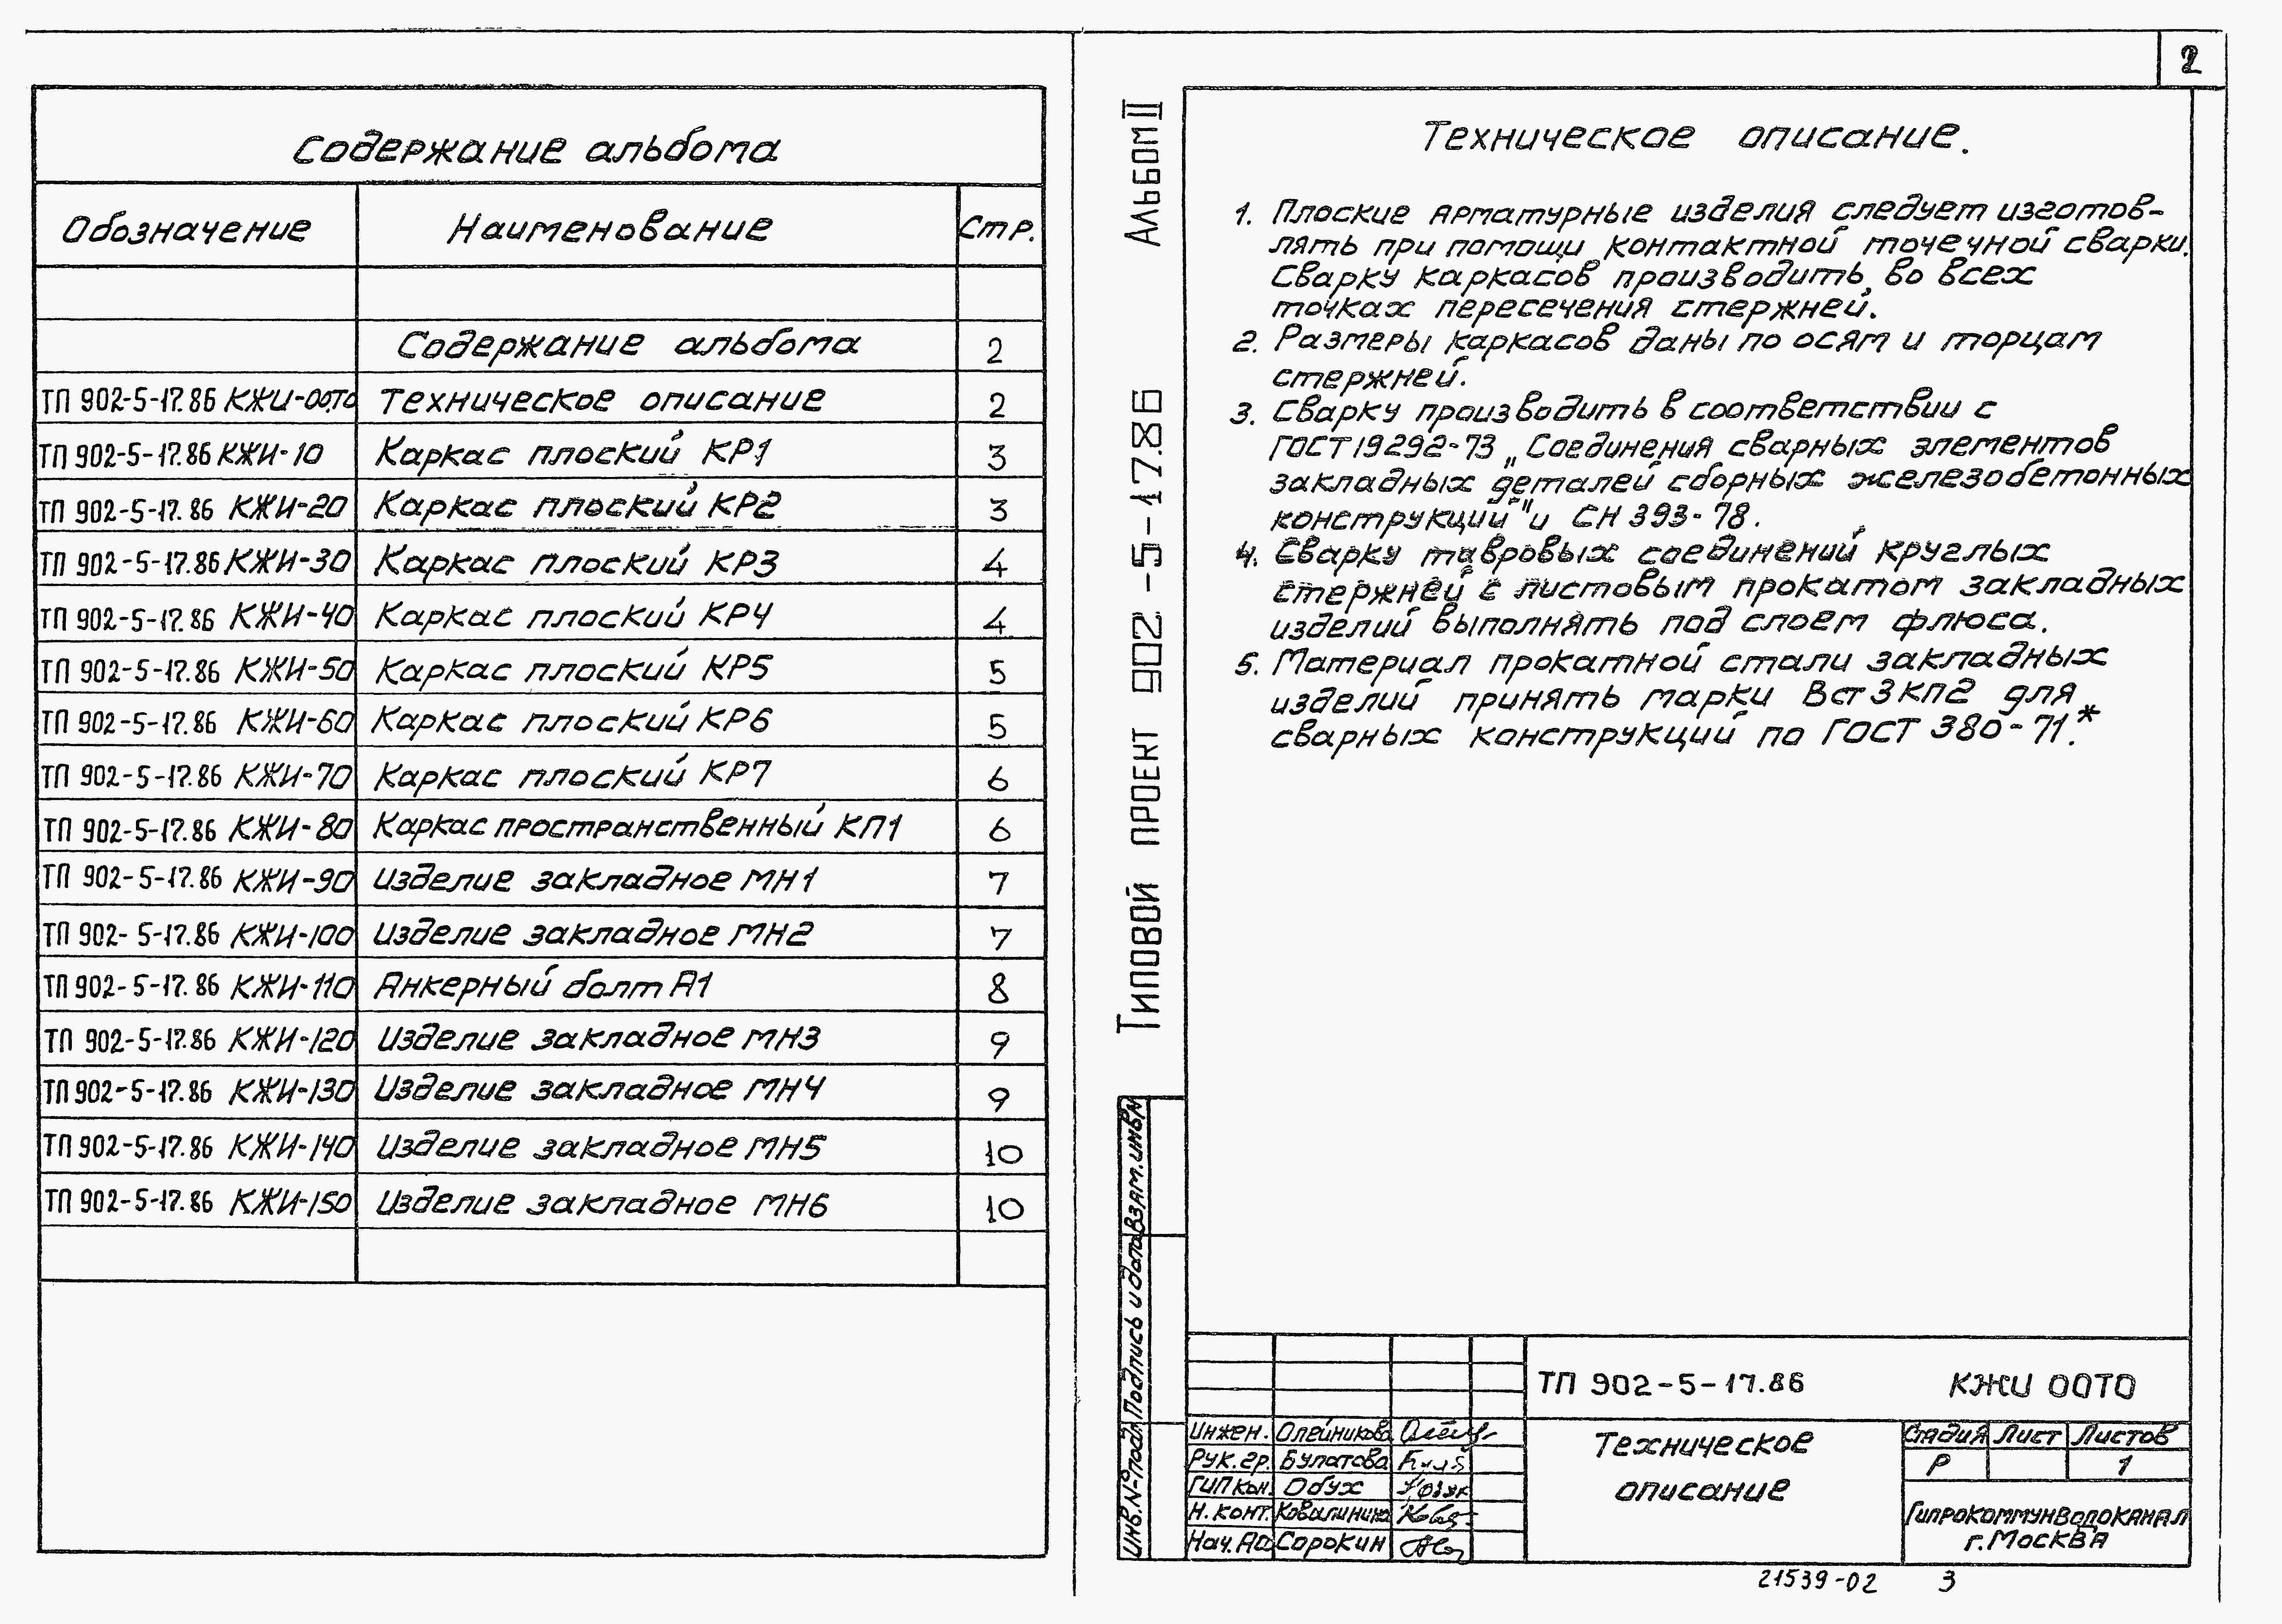 2
Содержание альбома
Обозначение Наименование Стр.
Содержание альбома 2
ТП 902-5-17.86 КЖИ-00ТО Техническое описание 2
ТП 902-5-17.86 КЖИ-10 Каркас плоский КР1 3
ТП 902-5-17.86 КЖИ-20 Каркас плоский КР2 3
ТП 902-5-17.86 КЖИ-30 Каркас плоский КР3 4
ТП 902-5-17.86 КЖИ-40 Каркас плоский КР4 4
ТП 902-5-17.86 КЖИ-50 Каркас плоский КР5 5
ТП 902-5-17.86 КЖИ-60 Каркас плоский КР6 5
ТП 902-5-17.86 КЖИ-70 Каркас плоский КР7 6
ТП 902-5-17.86 КЖИ-80 Каркас пространственный КП1 6
ТП 902-5-17.86 КЖИ-90 Изделие закладное МН1 7
ТП 902-5-17.86 КЖИ-100 Изделие закладное МН2 7
ТП 902-5-17.86 КЖИ-110 Анкерный болт А1 8
ТП 902-5-17.86 КЖИ-120 Изделие закладное МН3 9
ТП 902-5-17.86 КЖИ-130 Изделие закладное МН4 9
ТП 902-5-17.86 КЖИ-140 Изделие закладное МН5 10
ТП 902-5-17.86 КЖИ-150 Изделие закладное МН6 10
Типовой проект 902-5-17.86 Альбом II
Инв.№подл. Подпись и дата Взам.инв.№
Техническое описание.
1. Плоские арматурные изделия следует изготов-
лять при помощи контактной точечной сварки.
Сварку каркасов производить во всех
точках пересечения стержней.
2. Размеры каркасов даны по осям и торцам
стержней.
3. Сварку производить в соответствии с
ГОСТ 19292-73 „Соединения сварных элементов
закладных деталей сборных железобетонных
конструкций" и СН 393-78.
4. Сварку тавровых соединений круглых
стержней с листовым прокатом закладных
изделий выполнять под слоем флюса.
5. Материал прокатной стали закладных
изделий принять марки Вст3кп2 для
сварных конструкций по ГОСТ 380-71.*
ТП 902-5-17.86 КЖИ 00ТО
Инжен. Олейникова
Рук.гр. Булатова
ГИП кон. Обух
Н.конт. Ковалинина
Нач.АО Сорокин
Техническое
описание
Стадия Лист Листов
Р 1
Гипрокоммунводоканал
г.Москва
21539-02 3